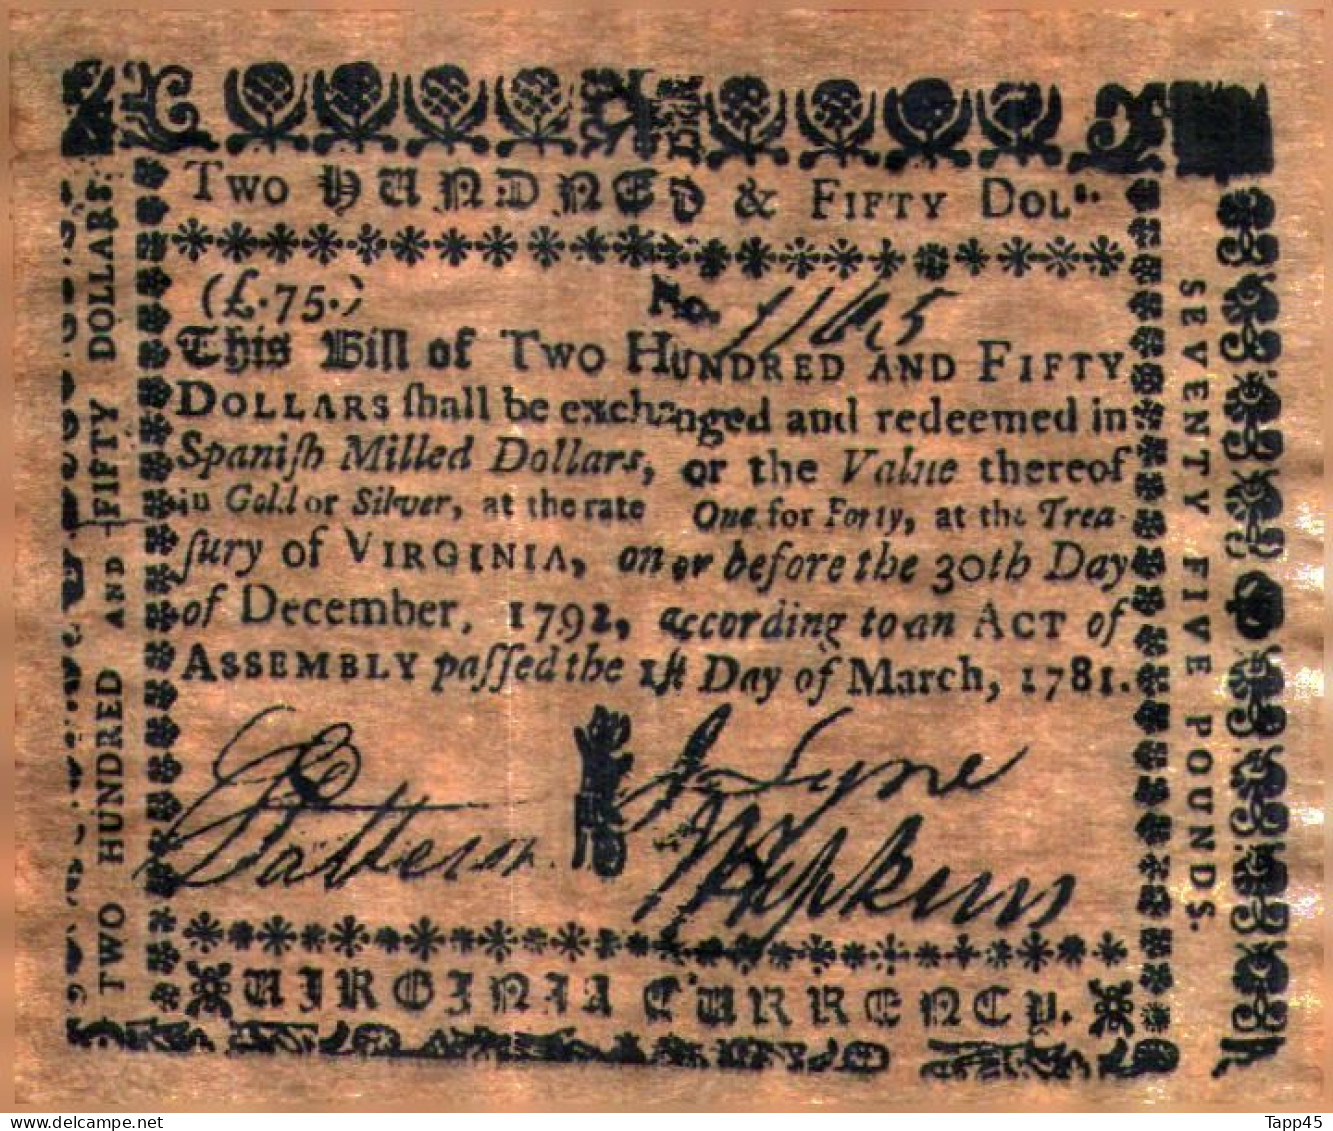 Two HUNDRED & FIFTY DOLrs.
(£.75.) No. 1165
This Bill of TWO HUNDRED AND FIFTY
DOLLARS ſhall be exchanged and redeemed in
Spaniſh Milled Dollars, or the Value thereof
in Gold or Silver, at the rate One for Forty, at the Trea-
ſury of VIRGINIA, on or before the 30th Day
of December, 1792, according to an ACT of
ASSEMBLY paſſed the 1ſt Day of March, 1781.
Patteson.
J. Lyne
Hopkins
VIRGINIA CURRENCY.
TWO HUNDRED AND FIFTY DOLLARS.
SEVENTY FIVE POUNDS.
www.delcampe.net
Tapp45